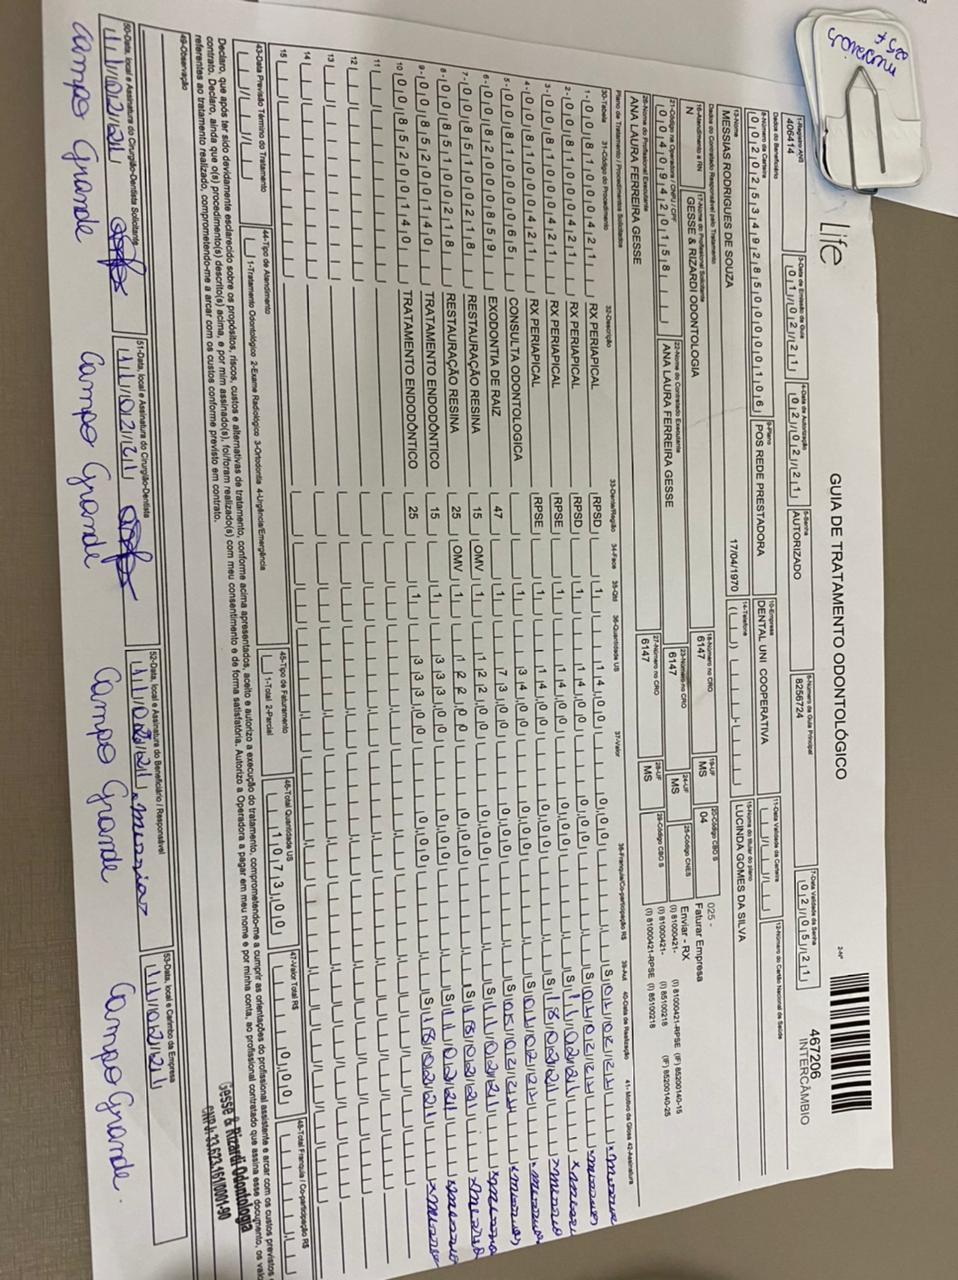 manuais
25ª
Life
GUIA DE TRATAMENTO ODONTOLÓGICO
2-NP
467206
INTERCÂMBIO
1-Registro ANS
406414
3-Data de Emissão da Guia
01/02/21
4-Data de Autorização
02/02/21
5-Senha
AUTORIZADO
6-Número da Guia Principal
8256724
7-Data Validade da Senha
02/05/21
Dados do Beneficiário
8-Número da Carteira
00202534928500000106
9-Plano
POS REDE PRESTADORA
10-Empresa
DENTAL UNI COOPERATIVA
11-Data Validade da Carteira
12-Número do Cartão Nacional de Saúde
13-Nome
MESSIAS RODRIGUES DE SOUZA
17/04/1970
14-Telefone
15-Nome do titular do plano
LUCINDA GOMES DA SILVA
Dados do Contratado Responsável pelo Tratamento
16-Atendimento a RN
N
17-Nome do Profissional Solicitante
GESSE & RIZARDI ODONTOLOGIA
18-Número no CRO
6147
19-UF
MS
20-Código CBO S
04
025 -
Faturar Empresa
Enviar - RX
21-Código na Operadora / CNPJ / CPF
00409420158
22-Nome do Contratado Executante
ANA LAURA FERREIRA GESSE
23-Número no CRO
6147
24-UF
MS
25-Código CNES
26-Nome do Profissional Executante
ANA LAURA FERREIRA GESSE
27-Número no CRO
6147
28-UF
MS
29-Código CBO S
(I) 81000421-RPSE (F) 85200140-15
(I) 81000421- (I) 85100218 (F) 85200140-25
(I) 81000421-RPSE (I) 85100218
Plano de Tratamento / Procedimentos Solicitados
30-Tabela 31-Código do Procedimento 32-Descrição 33-Dente/Região 34-Face 35-Qtd 36-Quantidade US 37-Valor 38-Franquia/Co-participação R$ 39-Aut 40-Data de Realização 41-Motivo da Glosa 42-Assinatura
1- 00 81000421 RX PERIAPICAL RPSD 1 14,00 0,00 S
2- 00 81000421 RX PERIAPICAL RPSD 1 14,00 0,00 S
3- 00 81000421 RX PERIAPICAL RPSE 1 14,00 0,00 S
4- 00 81000421 RX PERIAPICAL RPSE 1 14,00 0,00 S
5- 00 81000065 CONSULTA ODONTOLOGICA 1 34,00 0,00 S
6- 00 82000859 EXODONTIA DE RAIZ 47 1 73,00 0,00 S
7- 00 85100218 RESTAURAÇÃO RESINA 15 OMV 1 122,00 0,00 S
8- 00 85100218 RESTAURAÇÃO RESINA 25 OMV 1 122,00 0,00 S
9- 00 85200140 TRATAMENTO ENDODÔNTICO 15 1 333,00 0,00 S
10 00 85200140 TRATAMENTO ENDODÔNTICO 25 1 333,00 0,00 S
11
12
13
14
15
43-Data Previsão Término do Tratamento
44-Tipo de Atendimento
1-Tratamento Odontológico 2-Exame Radiológico 3-Ortodontia 4-Urgência/Emergência
45-Tipo de Faturamento
1-Total 2-Parcial
46-Total Quantidade US
1073,00
47-Valor Total R$
0,00
48-Total Franquia / Co-participação R$
Declaro, que após ter sido devidamente esclarecido sobre os propósitos, riscos, custos e alternativas de tratamento, conforme acima apresentados, aceito e autorizo a execução do tratamento, comprometendo-me a cumprir as orientações do profissional assistente e arcar com os custos previstos
contrato. Declaro, ainda que o(s) procedimento(s) descrito(s) acima, e por mim assinado(s), foi/foram realizado(s) com meu consentimento e de forma satisfatória. Autorizo a Operadora a pagar em meu nome e por minha conta, ao profissional contratado que assina esse documento, os valo
referentes ao tratamento realizado, comprometendo-me a arcar com os custos conforme previsto em contrato.
49-Observação
Gesse & Rizardi Odontologia
CNPJ: 33.623.161/0001-90
50-Data, local e Assinatura do Cirurgião-Dentista Solicitante
11/02/21
51-Data, local e Assinatura do Cirurgião-Dentista
11/02/21
52-Data, local e Assinatura do Beneficiário / Responsável
11/02/21
53-Data, local e Carimbo da Empresa
11/02/21
Campo Grande
Campo Grande
Campo Grande
Campo Grande.